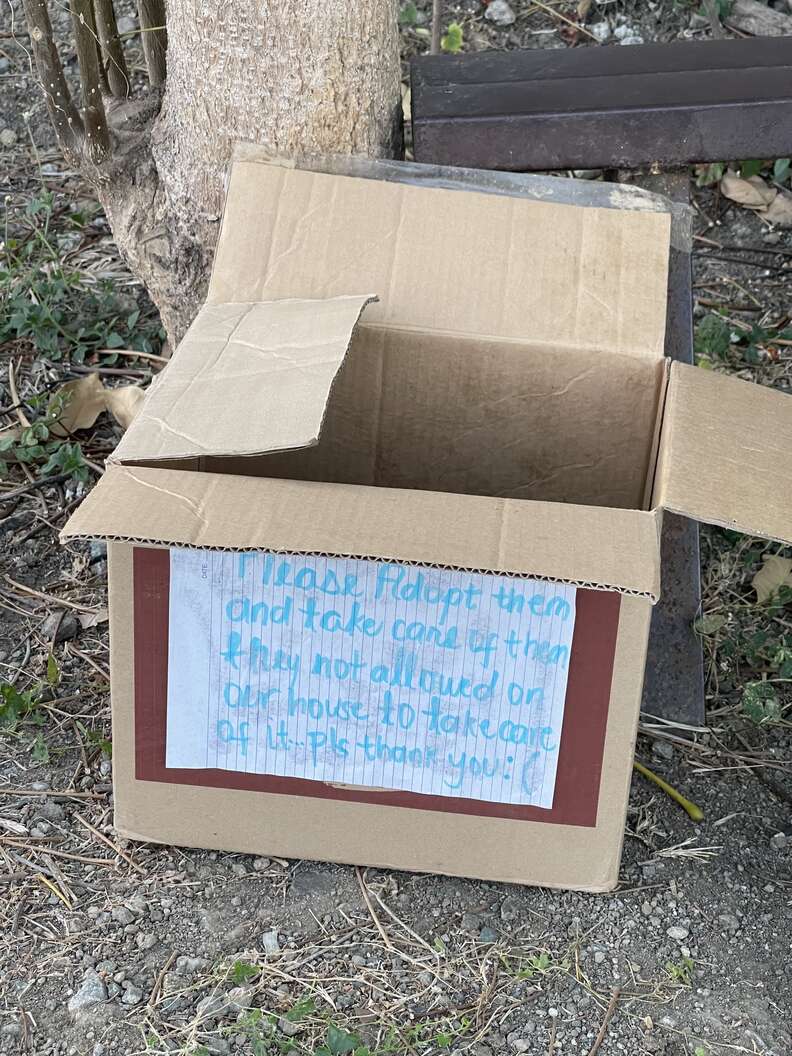 DATE:
Please Adopt them
and take care of them
they not allowed on
our house to take care
of it...pls thank you:(